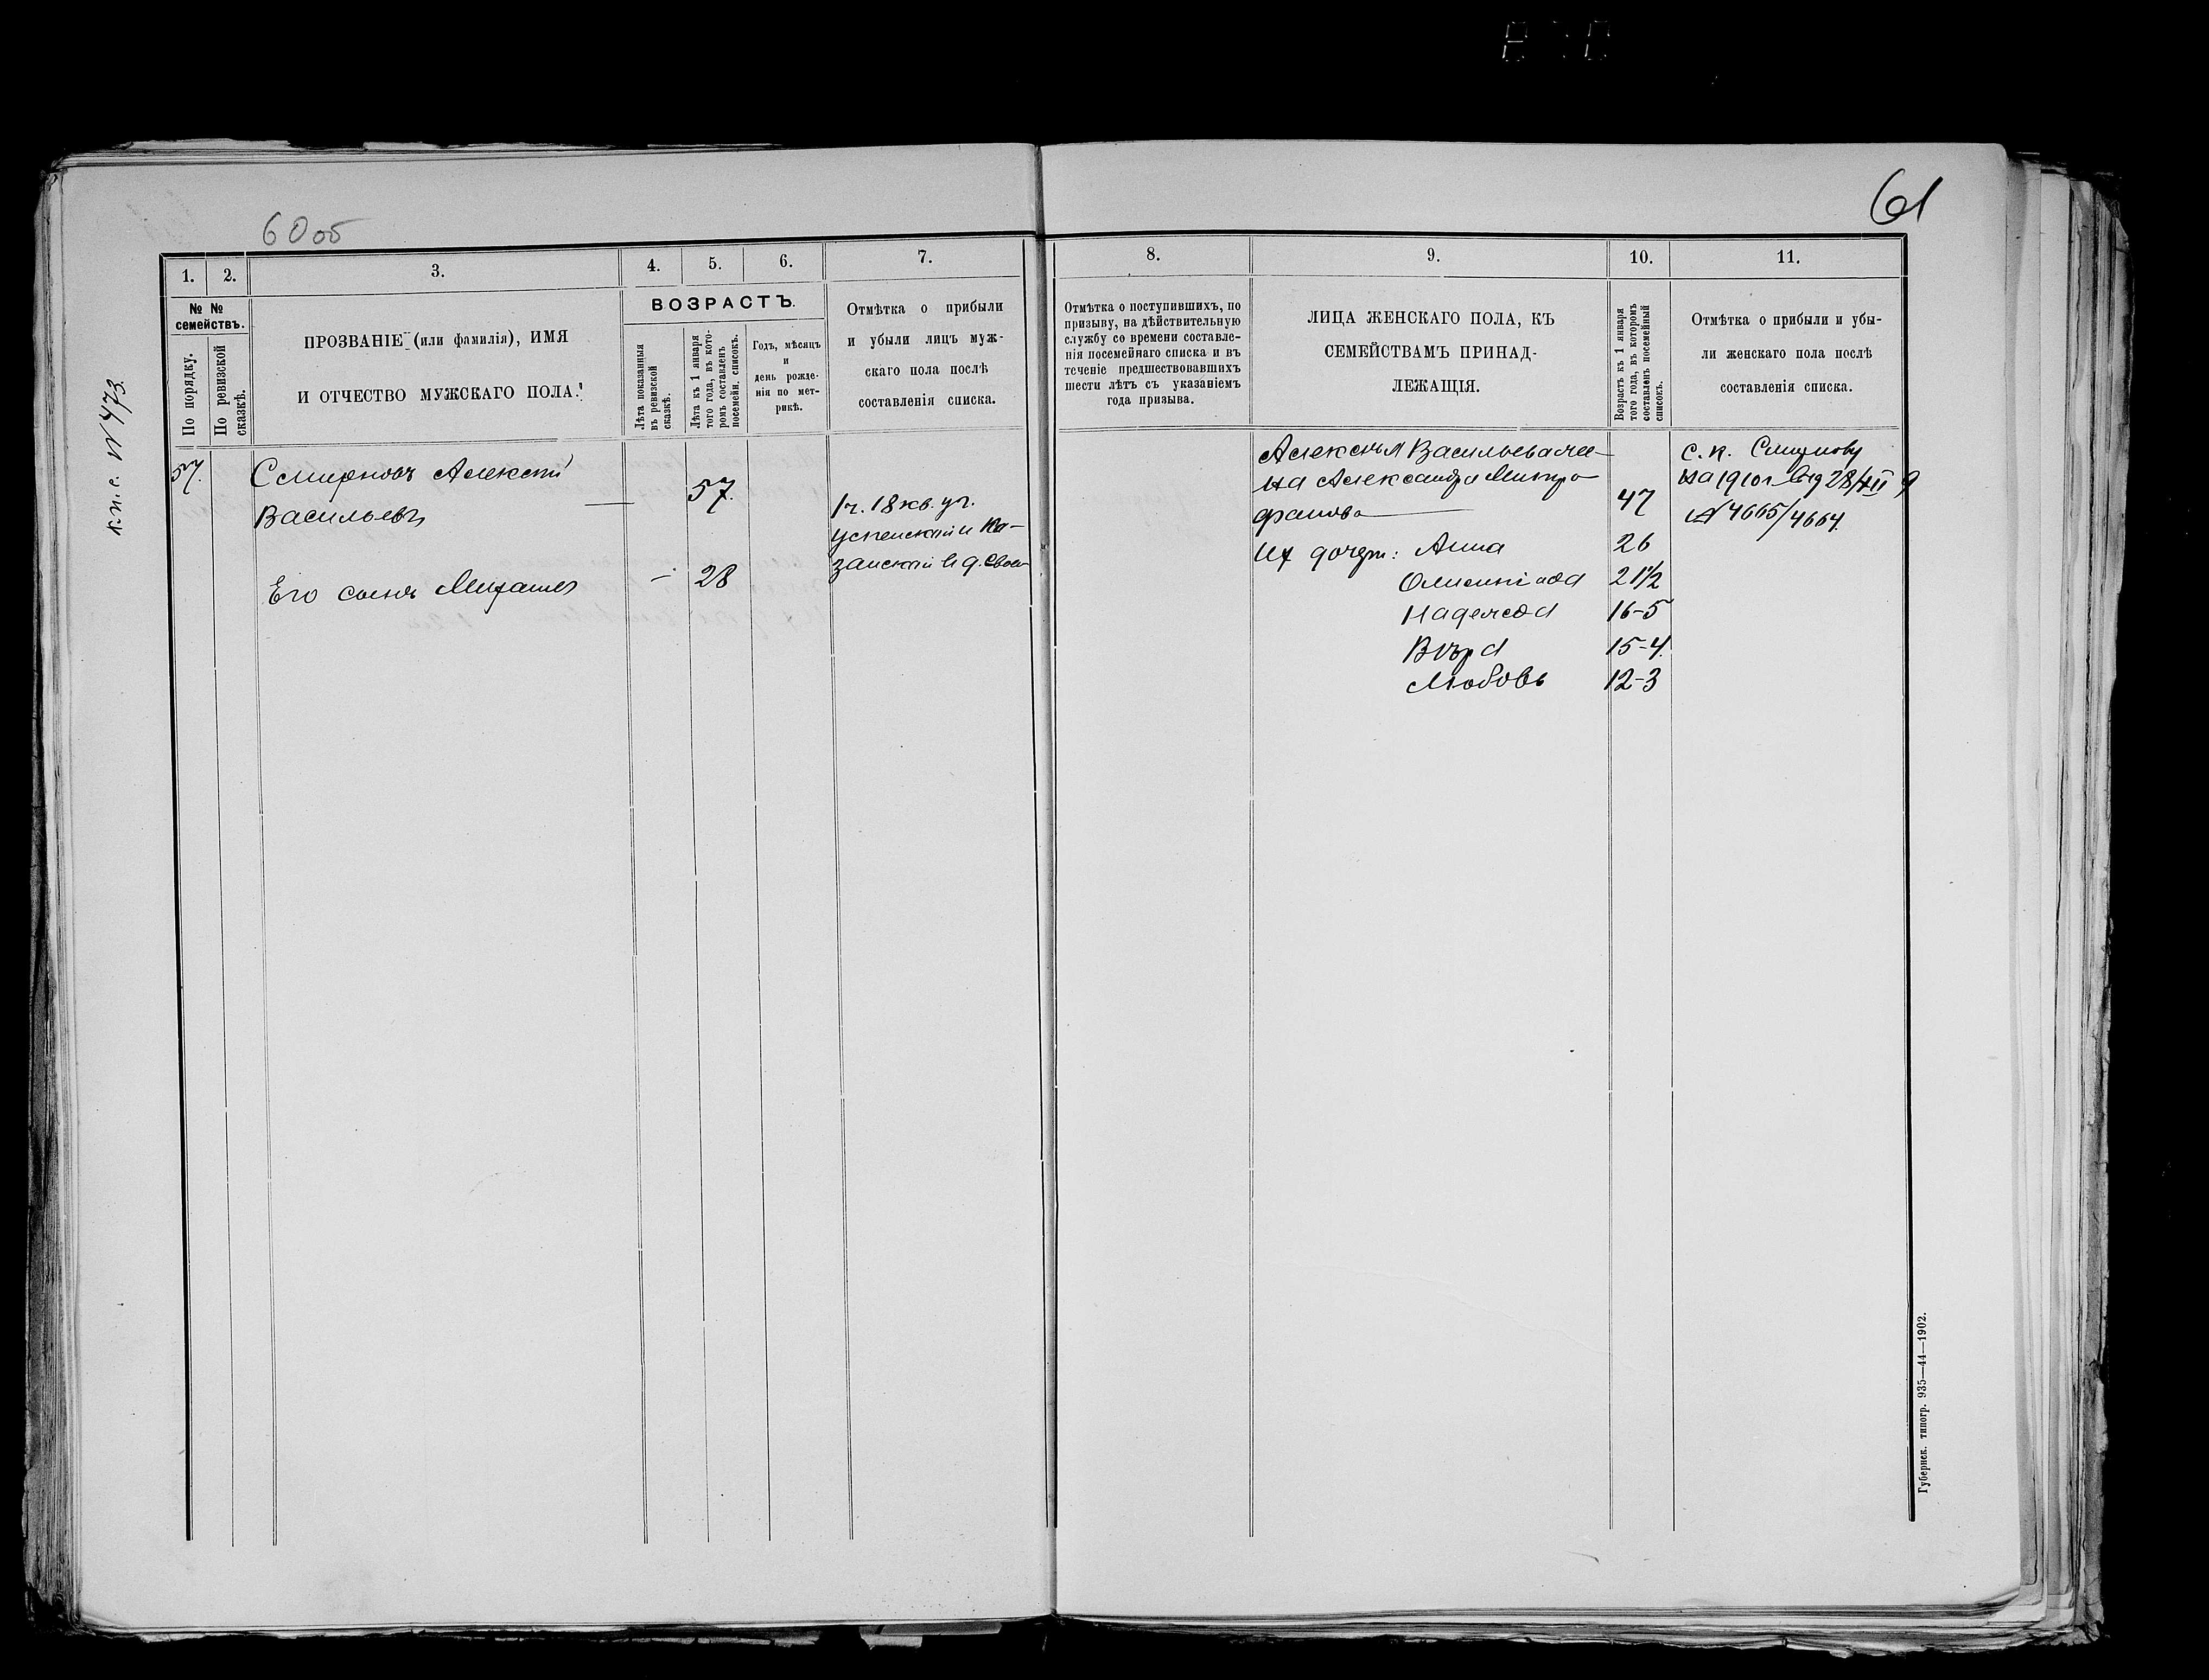 61
60об
к.п.с. № 473.
1. 2. 3. 4. 5. 6. 7.
№ №
семействъ.
По порядку.
По ревизской
сказкѣ.
ПРОЗВАНІЕ (или фамилія), ИМЯ
И ОТЧЕСТВО МУЖСКАГО ПОЛА.
ВОЗРАСТЪ.
Лѣта показанныя
въ ревизской
сказкѣ.
Лѣта къ 1 января
того года, въ кото-
ромъ составленъ
посемейн. списокъ.
Годъ, мѣсяцъ
и
день рожде-
нія по мет-
рикѣ.
Отмѣтка о прибыли
и убыли лицъ муж-
скаго пола послѣ
составленія списка.
57.
Смирновъ Алексѣй
Васильевъ
57.
1 ч. 18 кв. уч.
Успенскій и Ка-
занскій в д.
Его сынъ Михаилъ
— 28
8. 9. 10. 11.
Отмѣтка о поступившихъ, по
призыву, на дѣйствительную
службу со времени составле-
нія посемейнаго списка и въ
теченіе предшествовавшихъ
шести лѣтъ съ указаніемъ
года призыва.
ЛИЦА ЖЕНСКАГО ПОЛА, КЪ
СЕМЕЙСТВАМЪ ПРИНАД-
ЛЕЖАЩІЯ.
Возрастъ къ 1 января
того года, въ которомъ
составленъ посемейный
списокъ.
Отмѣтка о прибыли и убы-
ли женскаго пола послѣ
составленія списка.
Алексѣя Васильева же-
на Александра Митро-
фанова 47
Их дочери: Анна 26
Олимпіада 21½
Надежда 16-5
Вѣра 15-4.
Любовь 12-3
с. п. Смирнову
на 1910 г. 28/XII 9
№ 4665/4664.
Губернск. типогр. 935—44—1902.